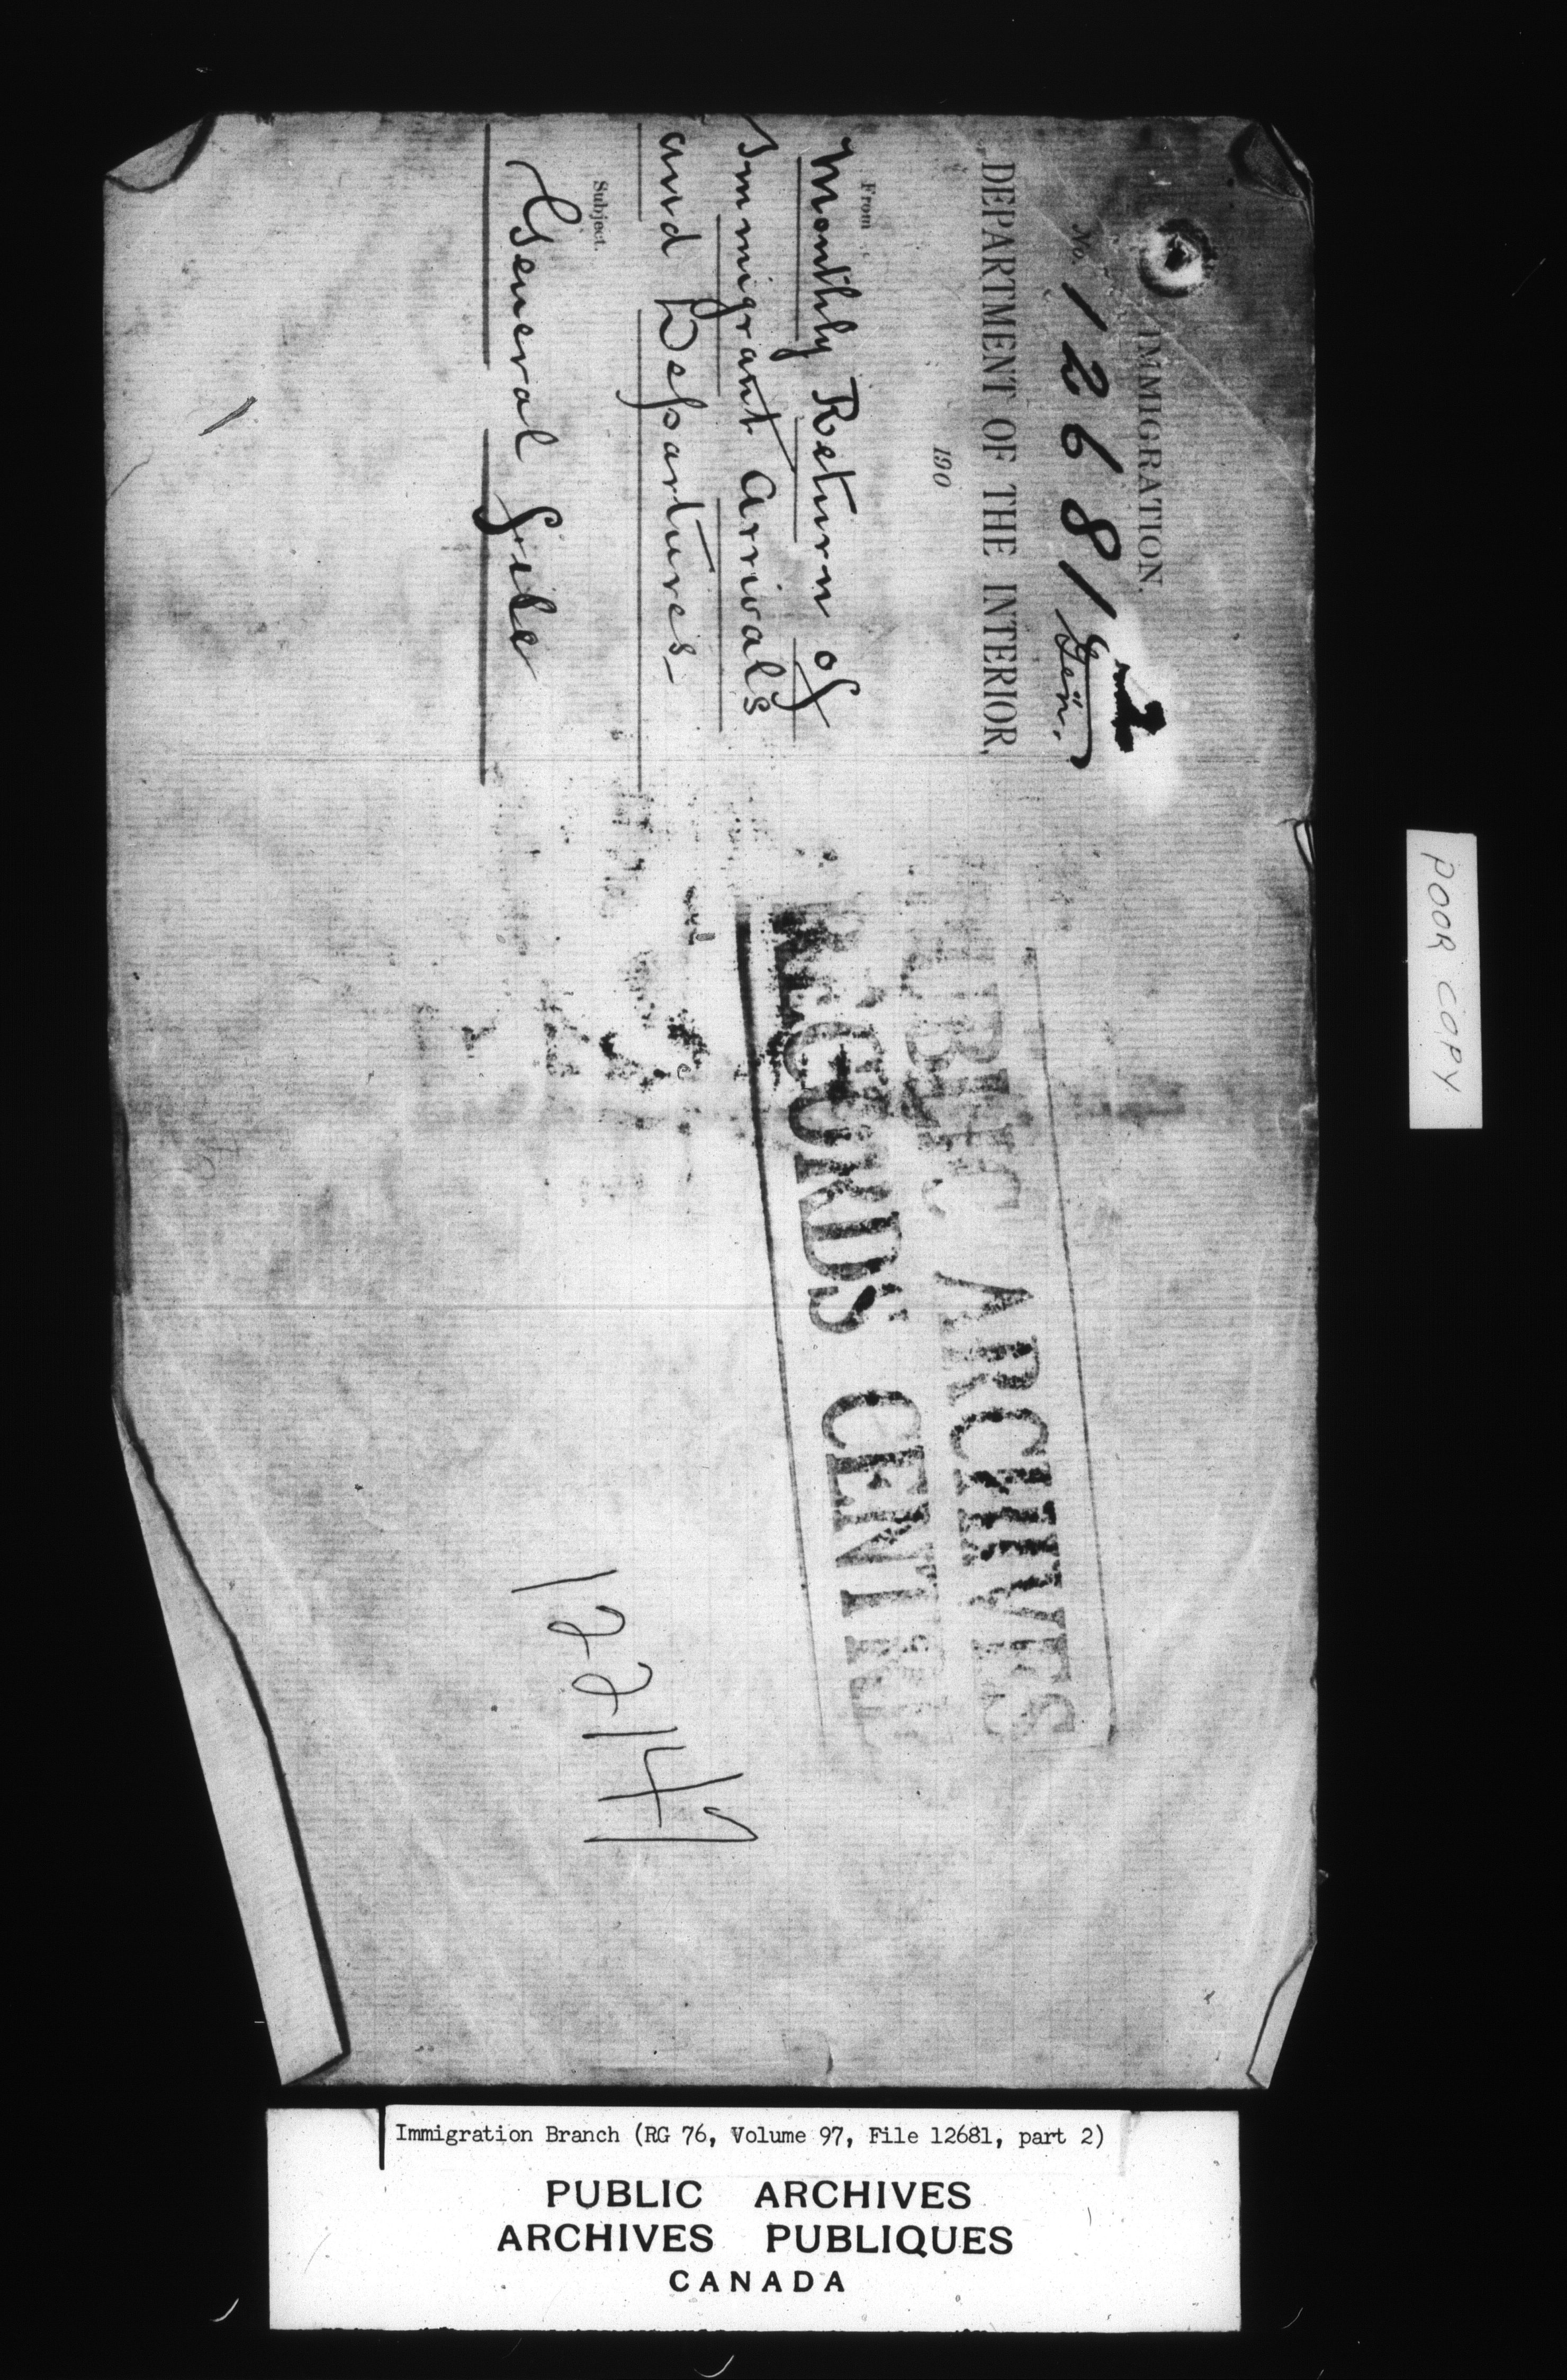 IMMIGRATION.
2
No. 12681 Gen.
DEPARTMENT OF THE INTERIOR,
190
From
Monthly Return of
Immigrant Arrivals
and Departures—
Subject.
General File
PUBLIC ARCHIVES
RECORDS CENTRE
122147
POOR COPY
Immigration Branch (RG 76, Volume 97, File 12681, part 2)
PUBLIC ARCHIVES
ARCHIVES PUBLIQUES
CANADA